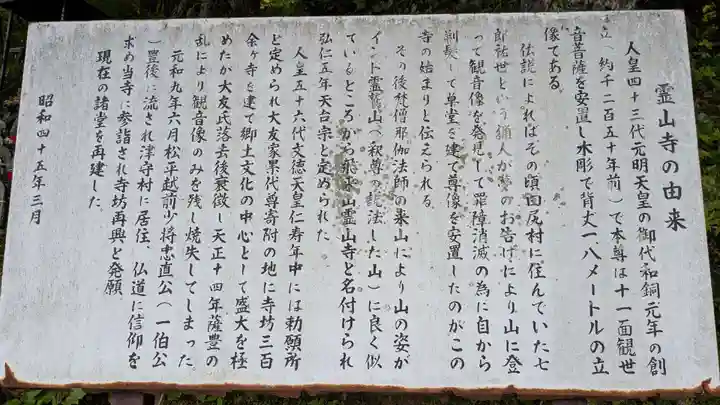 霊山寺の由来
人皇四十三代元明天皇の御代和銅元年の創
立(約千二百五十年前)で本尊は十一面観世
音菩薩を安置し木彫で背丈一、八メートルの立
像である。
伝説によればその頃田尻村に住んでいた七
郎祐世という猟人が夢のお告げにより山に登
って観音像を発見して罪障消滅の為に自から
剃髪して草堂を建て尊像を安置したのがこの
寺の始まりと伝えられる。
その後梵僧那伽法師の来山により山の姿が
インド霊鷲山(釈尊の説法した山)に良く似
ているところから飛来山霊山寺と名付けられ
弘仁五年天台宗と定められた。
人皇五十六代文徳天皇仁寿年中には勅願所
と定められ大友家累代尊寄附の地に寺坊三百
余ヶ寺を建て郷土文化の中心として盛大を極
めたが大友氏落去後衰微し天正十四年薩豊の
乱により観音像のみを残し焼失してしまった
元和九年六月松平越前少将忠直公(一伯公
)豊後に流され津守村に居住、仏道に信仰を
求め当寺に参詣され寺坊再興と発願
現在の諸堂を再建した。
昭和四十五年三月